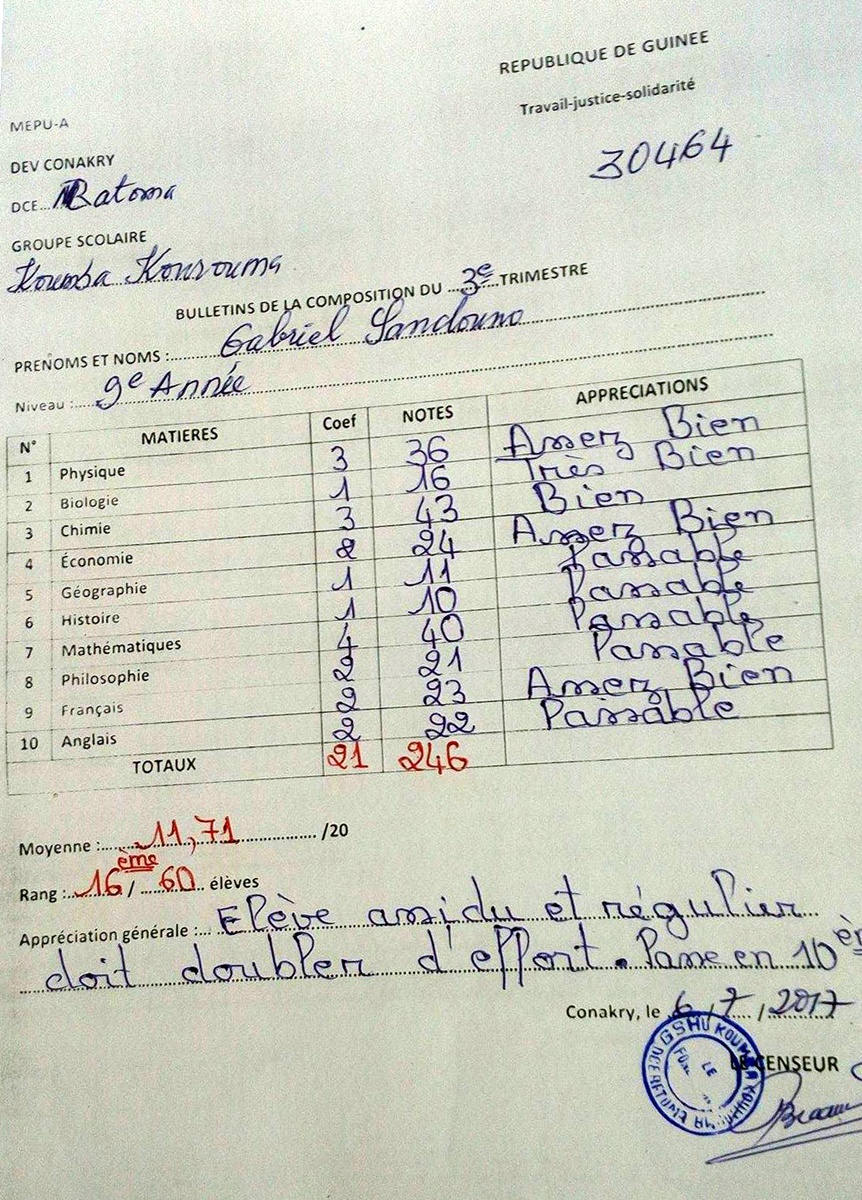 REPUBLIQUE DE GUINEE
Travail-justice-solidarité
MEPU-A
30464
DEV CONAKRY
DCE... Ratoma
GROUPE SCOLAIRE
Koumba Kourouma
BULLETINS DE LA COMPOSITION DU ...3e...TRIMESTRE
PRENOMS ET NOMS :...... Gabriel Sandouno
Niveau :..... 9e Année
N° MATIERES Coef NOTES APPRECIATIONS
1 Physique 3 36 Assez Bien
2 Biologie 1 16 Très Bien
3 Chimie 3 43 Bien
4 Économie 2 24 Assez Bien
5 Géographie 1 11 Passable
6 Histoire 1 10 Passable
7 Mathématiques 4 40 Passable
8 Philosophie 2 21 Passable
9 Français 2 23 Assez Bien
10 Anglais 2 22 Passable
TOTAUX 21 246
Moyenne :...... 11,71 ............ /20
Rang :... 16ème / .... 60 .. élèves
Appréciation générale :... Elève assidu et régulier
doit doubler d'effort. Passe en 10è
Conakry, le 6 / 7 / 2017
GSHU KOUMBA
LE
LE CENSEUR